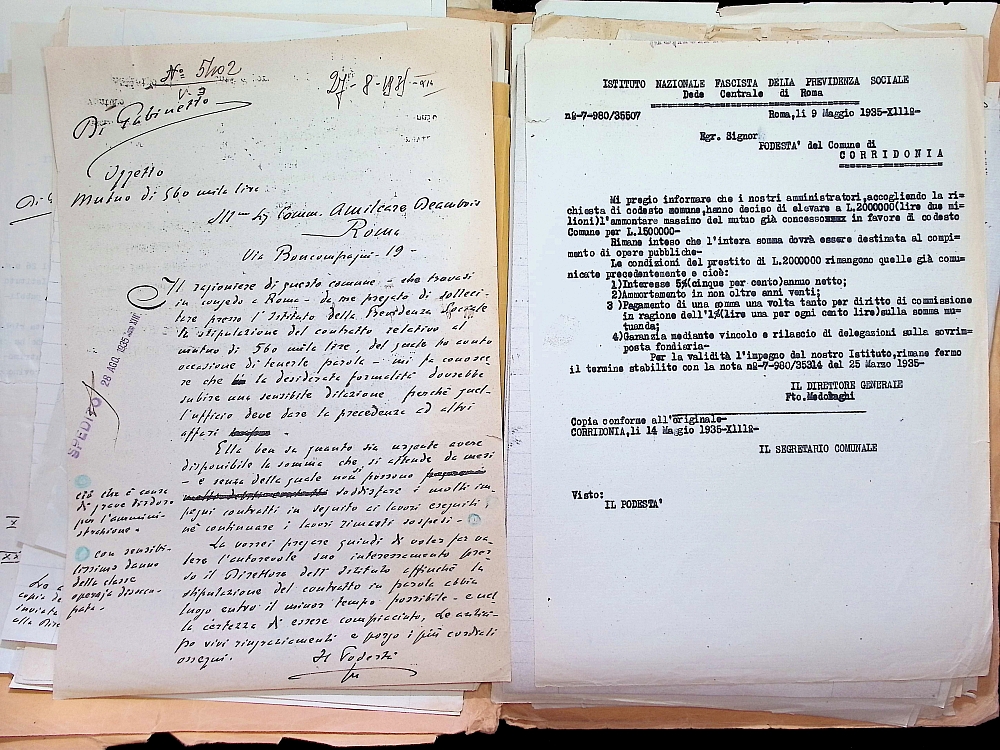 Nº 5402
V-3
27-8-1935-XIII
Di Gabinetto
Oggetto
Mutuo di 560 mila lire
Ill.mo Sig Comm. Amilcare Deambris
Roma
Via Boncompagni - 19 -
Il ragioniere di questo comune - che trovasi
in congedo a Roma - da me pregato di solleci-
tare presso l'Istituto della Previdenza Sociale
la stipulazione del contratto relativo al
mutuo di 560 mila lire, del quale ho avuto
occasione di tenerle parola - mi fa conosce
re che la desiderata formalità dovrebbe
subire una sensibile dilazione, perchè quel-
l'ufficio deve dare la precedenza ad altri
affari -
Ella ben sa quanto sia urgente avere
disponibile la somma che si attende da mesi
- e senza della quale non possono
soddisfare i molti im-
pegni contratti in seguito ai lavori eseguiti,
nè continuare i lavori rimasti sospesi -
La vorrei pregare quindi di voler far va-
lere l'autorevole suo interessamento pres-
so il Direttore dell'Istituto affinchè la
stipulazione del contratto in parola abbia
luogo entro il minor tempo possibile - e nel
la certezza di essere compiaciuto, Le antici-
po vivi ringraziamenti e porgo i più cordiali
ossequi.
Il Podestà
SPEDITO 28 AGO. 1935 Anno XIII
ciò che è causa
di grave disdoro
per l'ammini-
strazione -
con sensibi-
lissimo danno
della classe
operaja disoccu-
pata -
copia de
inviata
alla Dire
ISTITUTO NAZIONALE FASCISTA DELLA PREVIDENZA SOCIALE
Dede Centrale di Roma
nº-7-980/35507 Roma,li 9 Maggio 1935-XIIIº-
Egr. Signor
PODESTA' del Comune di
CORRIDONIA
Mi pregio informare che i nostri amministratori,accogliendo la ri-
chiesta di codesto comune,hanno deciso di elevare a L.2000000(lire due mi-
lioni)l'ammontare massimo del mutuo già concesso in favore di codesto
Comune per L.1500000-
Rimane inteso che l'intera somma dovrà essere destinata al compi-
mento di opere pubbliche-
Le condizioni del prestito di L.2000000 rimangono quelle già comu-
nicate precedentemente e cioè:
1)Interesse 5%(cinque per cento)annuo netto;
2)Ammortamento in non oltre anni venti;
3)Pagamento di una somma una volta tanto per diritto di commissione
in ragione dell'1%(lire una per ogni cento lire)sulla somma mu-
tuanda;
4)Garanzia mediante vincolo e rilascio di delegazioni sulla sovrim-
posta fondiaria-
Per la validità l'impegno del nostro Istituto,rimane fermo
il termine stabilito con la nota nº-7-980/35314 del 25 Marzo 1935-
IL DIRETTORE GENERALE
Fto.Medolaghi
Copia conforme all'originale-
CORRIDONIA,li 14 Maggio 1935-XIIIº-
IL SEGRETARIO COMUNALE
Visto:
IL PODESTA'